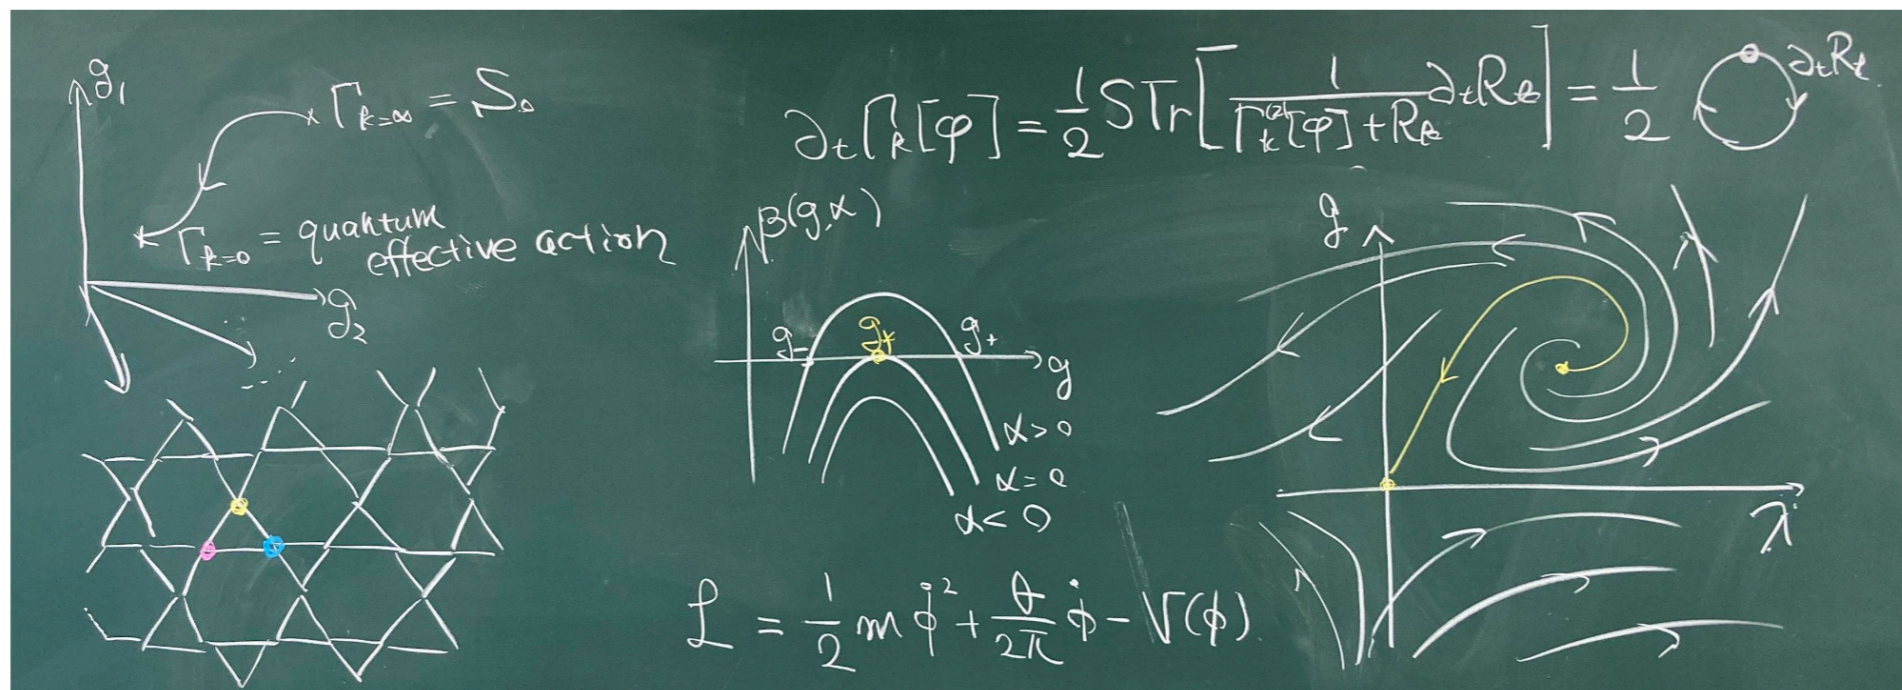 g₁
Γ_{k=∞} = S₀
Γ_{k=0} = quantum
effective action
g₂
∂ₜΓₖ[φ] = 1/2 STr[1/(Γₖ⁽²⁾[φ] + Rₖ) ∂ₜRₖ] = 1/2 ∂ₜRₖ
β(g,α)
g₋ g* g₊
g
α>0
α=0
α<0
g
λ
ℒ = 1/2 m ϕ̇² + θ/2π ϕ̇ − V(ϕ)